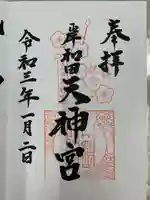 奉拝
岸和田天神宮
令和三年一月二日